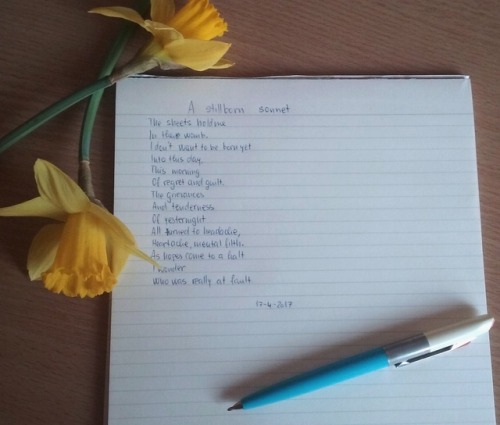 A stillborn sonnet
The sheets hold me
In their womb.
I don't want to be born yet
Into this day.
This morning
Of regret and guilt.
The grievances
And tenderness
Of yesternight
All turned to headache,
Heartache, mental filth.
As hopes come to a halt
I wonder
Who was really at fault.
17-4-2017